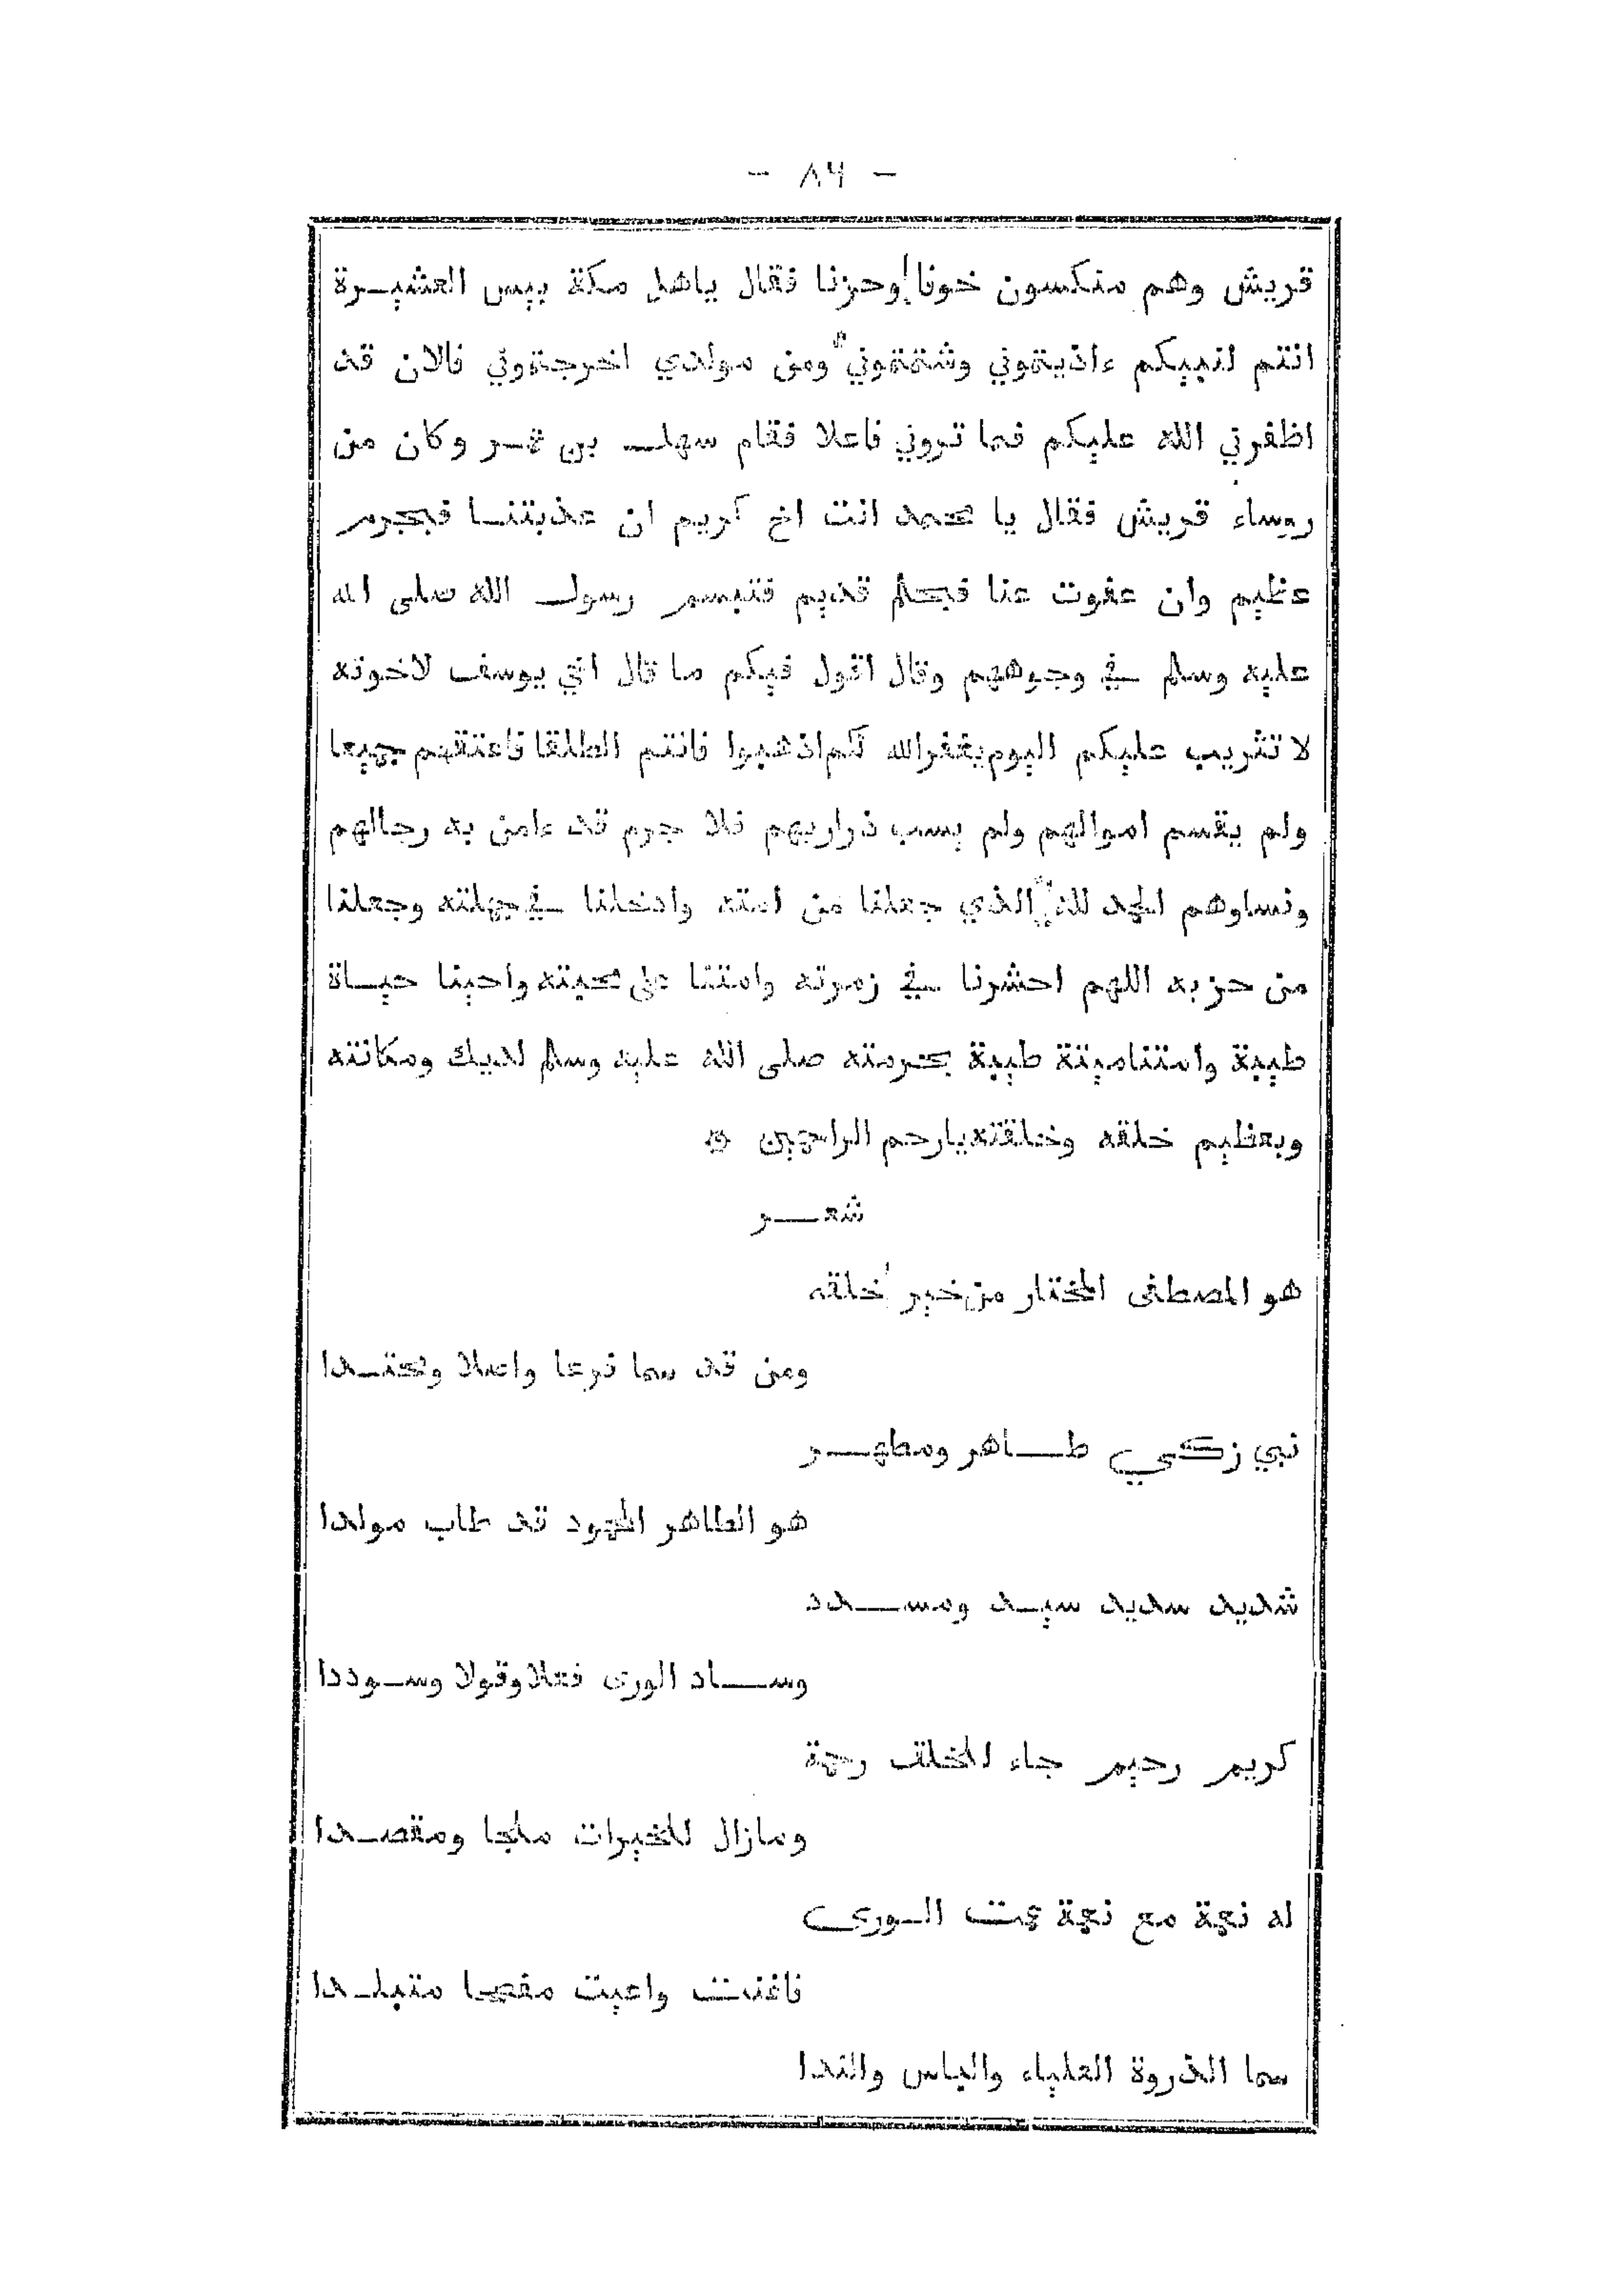 - ٨٦ -
قريش وهم منكسون خوفا وحزنا فقال ياهل مكة بيس العشيــرة
انتم لنبيكم ءاذيتموني وشتمتموني ومن مولدي اخرجتموني فالان قد
اظفرني الله عليكم فما تروني فاعلا فقام سهلــ بن عمــر وكان من
روساء قريش فقال يا محمد انت اخ كريم ان عذبتنــا فبجرم
عظيم وان عفوت عنا فبحلم قديم فتبسم رسولــ الله صلى الله
عليه وسلم في وجوههم وقال اقول فيكم ما قال اخي يوسف لاخوته
لا تثريب عليكم اليوم يغفر الله لكم اذهبوا فانتم الطلقا فاعتقهم جميعا
ولم يقسم اموالهم ولم يسب ذراريهم فلا جرم قد ءامن به رجالهم
ونساوهم الحمد لله الذي جعلنا من امته وادخلنا في جملته وجعلنا
من حزبه اللهم احشرنا في زمرته وامتنا على محبته واحينا حيــاة
طيبة وامتنا ميتة طيبة بحرمته صلى الله عليه وسلم لديك ومكانته
وبعظيم خلقه وخلقته يارحم الراحمين
شعــر
هو المصطفى المختار من خير خلقه
ومن قد سما فرعا واصلا ومحتــدا
نبي زكي طــاهر ومطهــر
هو الطاهر المحمود قد طاب مولدا
شديد سديد سيــد ومســدد
وســاد الورى فعلا وقولا وســوددا
كريم رحيم جاء للخلق رحمة
ومازال للخيرات ملجا ومقصــدا
له نعمة مع نعمة عمت الــورى
فاغنت واعيت مفصحا متبلــدا
سما الذروة العلياء والباس والندا